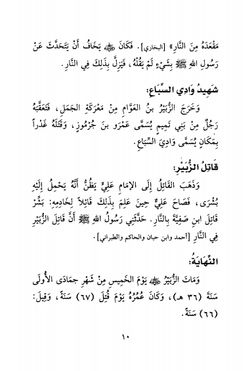 مَقْعَدَهُ مِنَ النَّارِ» [البخاري]. فَكَانَ ﷺ يَخَافُ أَنْ يَتَحَدَّثَ عَنْ
رَسُولِ اللهِ ﷺ بِشَيْءٍ لَمْ يَقُلْهُ، فَيَزِلَّ بِذَلِكَ فِي النَّارِ.
شَهِيدُ وَادِي السِّبَاعِ:
وَخَرَجَ الزُّبَيْرُ بنُ العَوَّامِ مِنْ مَعْرَكَةِ الجَمَلِ، فَتَعَقَّبَهُ
رَجُلٌ مِنْ بَنِي تَمِيمٍ يُسَمَّى عَمْرَو بنَ جُرْمُوزٍ، وَقَتَلَهُ غَدْراً
بِمَكَانٍ يُسَمَّى وَادِيَ السِّبَاعِ.
قَاتِلُ الزُّبَيْرِ:
وَذَهَبَ القَاتِلُ إِلَى الإِمَامِ عَلِيٍّ يَظُنُّ أَنَّهُ يَحْمِلُ إِلَيْهِ
بُشْرَى، فَصَاحَ عَلِيٌّ حِينَ عَلِمَ بِذَلِكَ قَائِلاً لِخَادِمِهِ: بَشِّرْ
قَاتِلَ ابنِ صَفِيَّةَ بِالنَّارِ. حَدَّثَنِي رَسُولُ اللهِ ﷺ أَنَّ قَاتِلَ الزُّبَيْرِ
فِي النَّارِ [أحمد وابن حبان والحاكم والطبراني].
النِّهَايَةُ:
وَمَاتَ الزُّبَيْرُ ﷺ يَوْمَ الخَمِيسِ مِنْ شَهْرِ جمَادَى الأُولَى
سَنَةَ (٣٦ هـ)، وَكَانَ عُمْرُهُ يَوْمَ قُتِلَ (٦٧) سَنَةً، وَقِيلَ:
(٦٦) سَنَةً.
١٠